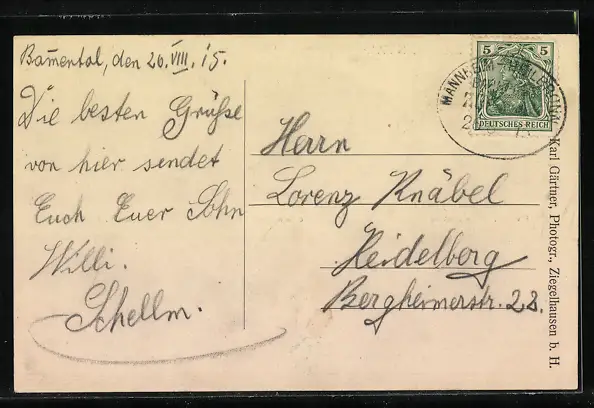 Bamental, den 26.VIII.15.
Die besten Grüße
von hier sendet
Euch Euer Sohn
Willi.
Schellm.
5 5
DEUTSCHES REICH
MANNHEIM - HEILBRONN
Herrn
Lorenz Knäbel
Heidelberg
Bergheimerstr. 28.
Karl Gärtner, Photogr., Ziegelhausen b. H.